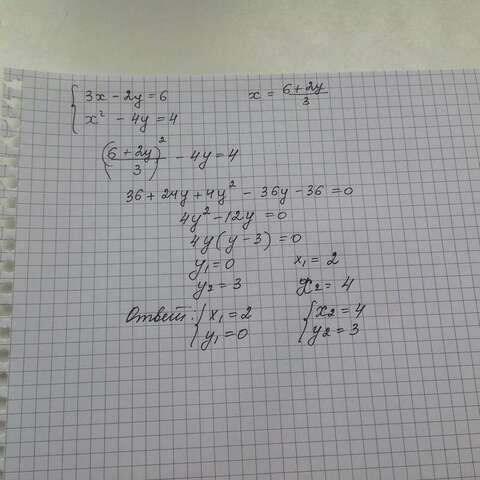 { 3x - 2y = 6    x = (6 + 2y)/3
{ x² - 4y = 4
((6 + 2y)/3)² - 4y = 4
36 + 24y + 4y² - 36y - 36 = 0
4y² - 12y = 0
4y(y - 3) = 0
y₁ = 0    x₁ = 2
y₂ = 3    x₂ = 4
Ответ: { x₁ = 2    { x₂ = 4
{ y₁ = 0    { y₂ = 3